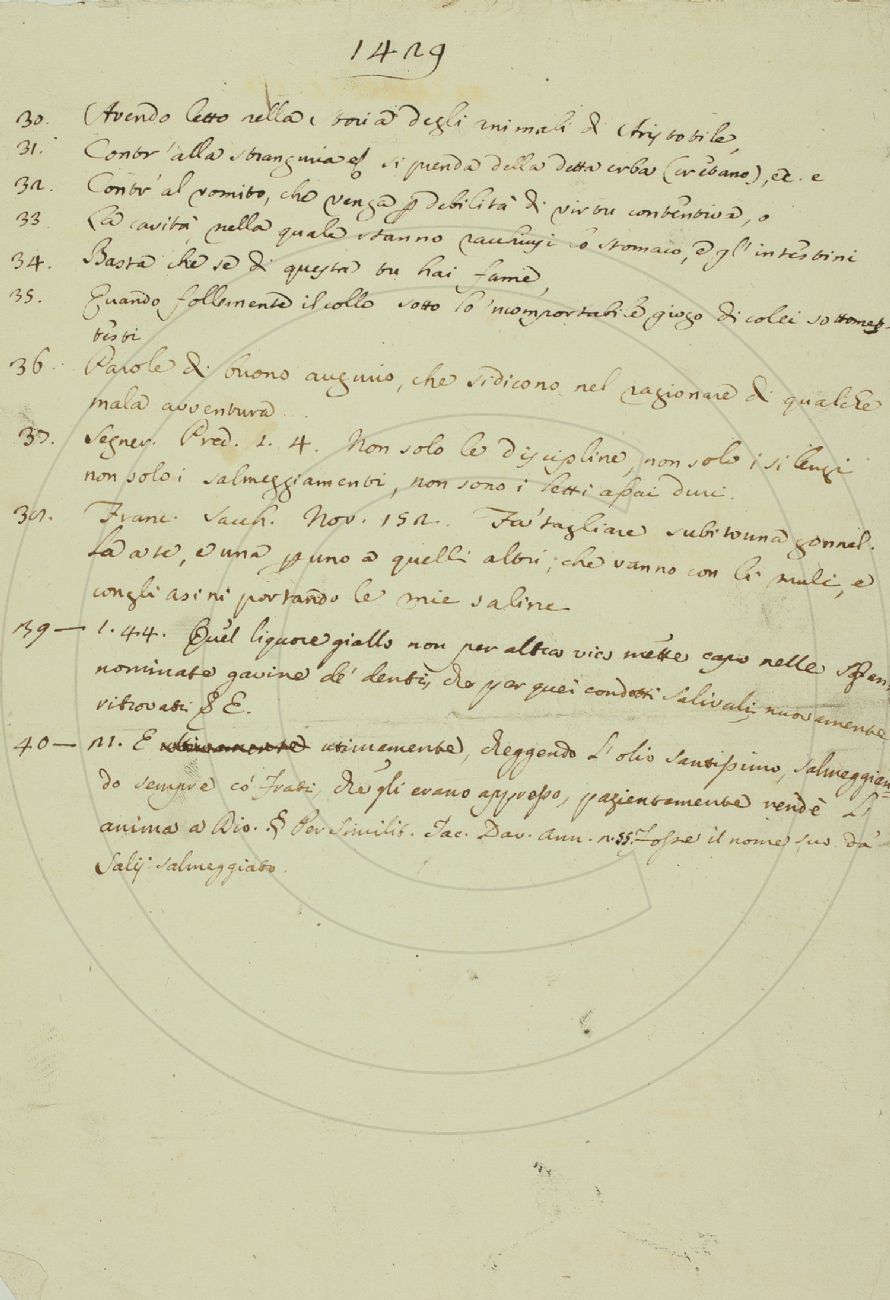 1429
30. Avendo letto nella storia degli animali di Aristotile,
31. Contr'alla stranguria si prenda della detta erba (crètano), ec. e
32. Contr'al vomito, che venga p debilità di virtu contentiva, o
33 La cavità nella quale stanno racchiusi lo stomaco, e gl'intestini
34. Basta che se di questa tu hai fame,
35. Quando follemente il collo sotto lo 'ncomportabile giogo di colei sottomet-
testi
36. Parole di buono augurio, che si dicono nel ragionare di qualche
mala avventura...
37. Segner. Pred. 1. 4. Non solo le discipline, non solo i silenzi
non solo i salmeggiamenti, non sono i letti assai duri.
38. Franc. Sacch. Nov. 152. Fa' tagliare subito una gonnel-
la a te, e una p uno a quelli altri, che vanno con li muli, e
con gli asini portando le mie saline
39 — 1. 44. Quel liquore giallo non per altra via mette capo nelle
nominate gavine de' denti, che per quei condotti salivali nuovamente
ritrovati § E.
40 — 21. E ultimamente utimamente, chieggendo l'olio santissimo, salmeggian=
do sempre co' Frati, che gli erano appresso, pazientemente rendè l'
anima a Dio. § Per similit. Tac. Dav. ann. 2. 55. Fosse il nome suo da'
Salij salmeggiato.